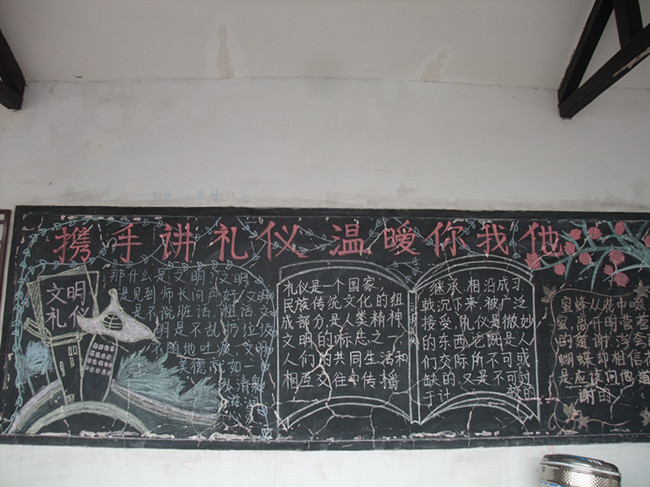 携手讲礼仪 温暖你我他
文明
礼仪
那什么是文明?文明
是见到师长问声好,文明
是不说脏话,粗话,文
明是不乱扔垃圾,
随地吐痰,文明
美德
礼仪是一个国家,
民族传统文化的组
成部分,是人类精神
文明的标志之一
人们的共同生活和
相互交往中传播
继承,相沿成习
戟沉下来,被广泛
接受,礼仪是微妙
的东西,它既是人
们交际所不可或
缺的,又是不可过
于计
蜜蜂从花中
蜜,离开时营营
的道谢,浮
蝴蝶却相信花
是应该向他道
谢的